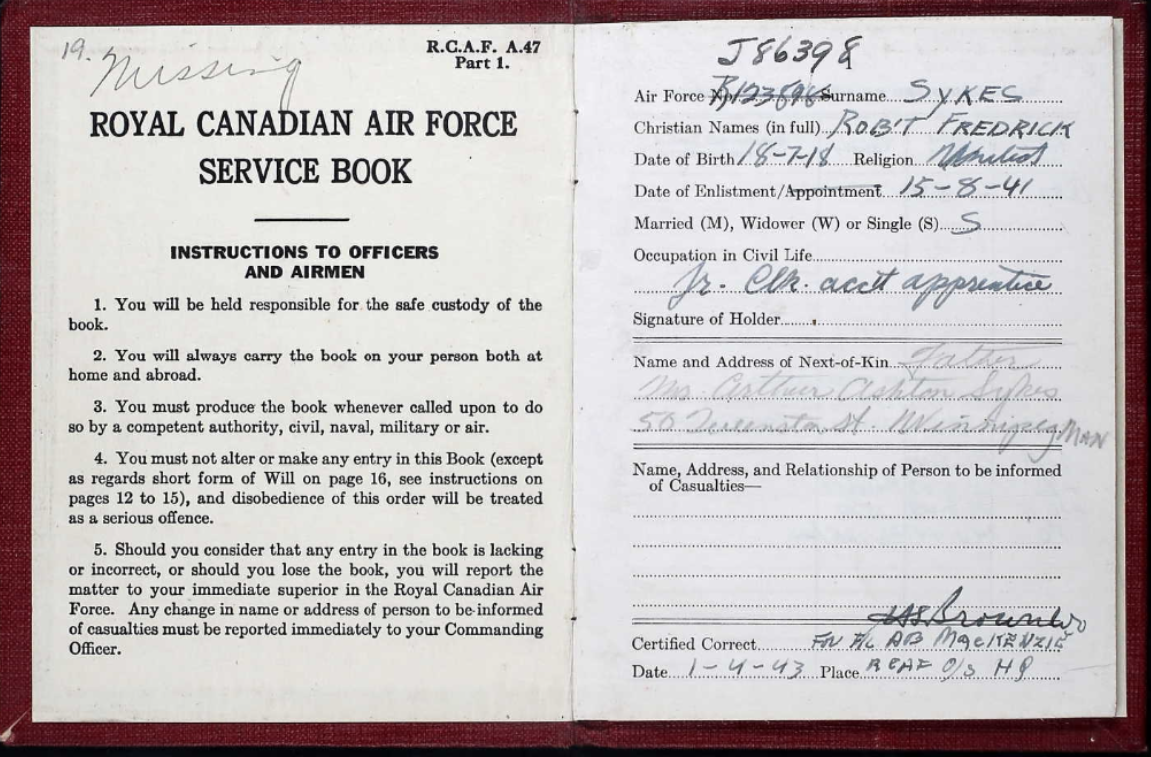 19. Missing
R.C.A.F. A.47
Part 1.
ROYAL CANADIAN AIR FORCE
SERVICE BOOK
INSTRUCTIONS TO OFFICERS
AND AIRMEN
1. You will be held responsible for the safe custody of the
book.
2. You will always carry the book on your person both at
home and abroad.
3. You must produce the book whenever called upon to do
so by a competent authority, civil, naval, military or air.
4. You must not alter or make any entry in this Book (except
as regards short form of Will on page 16, see instructions on
pages 12 to 15), and disobedience of this order will be treated
as a serious offence.
5. Should you consider that any entry in the book is lacking
or incorrect, or should you lose the book, you will report the
matter to your immediate superior in the Royal Canadian Air
Force. Any change in name or address of person to be informed
of casualties must be reported immediately to your Commanding
Officer.
J86398
Air Force No. Surname SYKES
Christian Names (in full) ROB'T FREDRICK
Date of Birth 18-7-18 Religion
Date of Enlistment/Appointment 15-8-41
Married (M), Widower (W) or Single (S) S
Occupation in Civil Life
Jr. Clk. acct apprentice
Signature of Holder
Name and Address of Next-of-Kin Father
Mr. Arthur Ashton Sykes
50 Queenston St. Winnipeg MAN
Name, Address, and Relationship of Person to be informed
of Casualties—
Certified Correct MacKENZIE
Date 1-4-43 Place RCAF O/S HQ